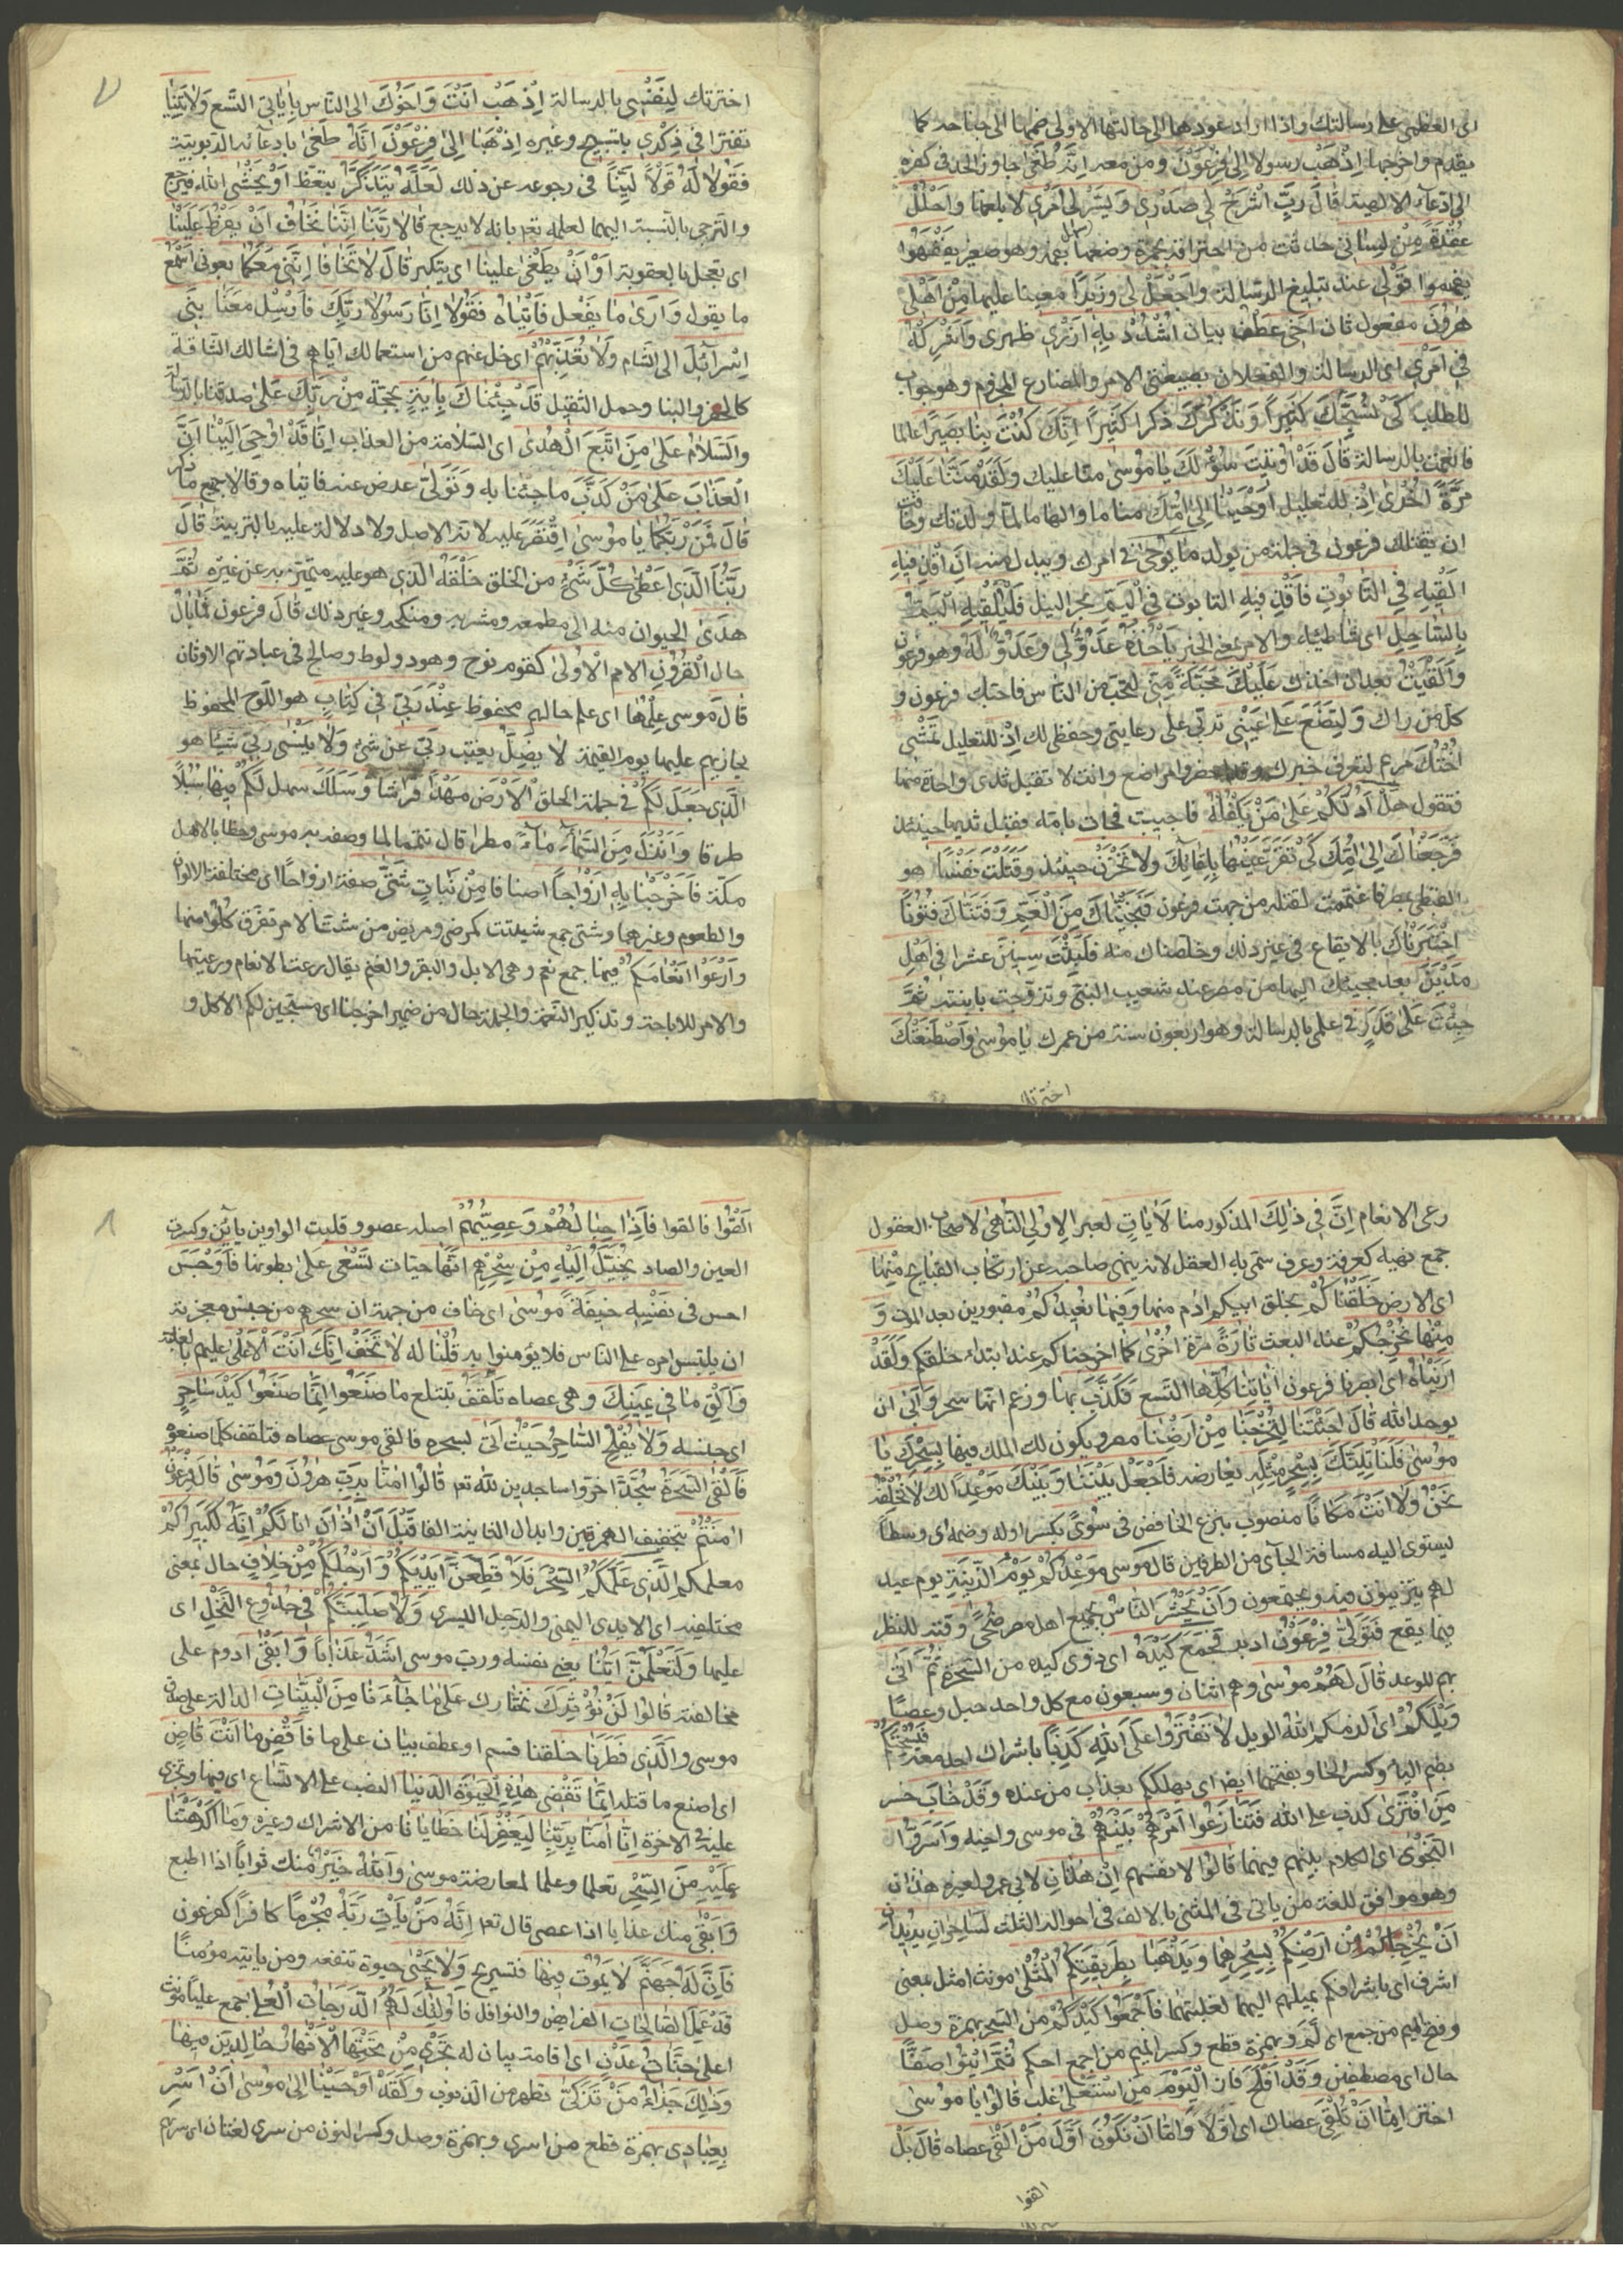 اى العظمى على رسالتك واذا اراد عودهما الى حالتها الاولى ضمها الى جناحه كما
يقدم واخرجها اِذْهَبْ رسولا اِلىٰ فِرْعَوْنَ ومن معه اِنَّهُ طَغىٰ جاوز الحد فى كفره
الى ادعاء الالهية قَالَ رَبِّ اشْرَحْ لِي صَدْرِي وَيَسِّرْ لِي اَمْرِي لابلغها وَاحْلُلْ
عُقْدَةً مِنْ لِسَانِي حدثت من احتراقه بجمرة وضعها بفمه وهو صغير يَفْقَهُوا
يفهموا قَوْلِي عند تبليغ الرسالة وَاجْعَلْ لِي وَزِيرًا معينا عليها مِنْ اَهْلِي
هٰرُونَ مفعول ثان اَخِي عطف بيان اُشْدُدْ بِهِ اَزْرِي ظهرى وَاَشْرِكْهُ
فِي اَمْرِي اى الرسالة والفعلان بصيغتى الامر والمضارع المجزوم وهو جواب
للطلب كَيْ نُسَبِّحَكَ كَثِيرًا وَنَذْكُرَكَ ذكرا كَثِيرًا اِنَّكَ كُنْتَ بِنَا بَصِيرًا عالما
فانعمت بالرسالة قَالَ قَدْ اُوتِيتَ سُؤْلَكَ يَا مُوسىٰ منا عليك وَلَقَدْ مَنَنَّا عَلَيْكَ
مَرَّةً اُخْرىٰ اِذْ للتعليل اَوْحَيْنَا اِلىٰ اُمِّكَ مناما او الهاما لما ولدتك وخافت
ان يقتلك فرعون فى جملة من يولد مَا يُوحىٰ فى امرك ويبدل منه اَنِ اقْذِفِيهِ
اَلْقِيهِ فِي التَّابُوتِ فَاقْذِفِيهِ التابوت فِي الْيَمِّ بحر النيل فَلْيُلْقِهِ الْيَمُّ
بِالسَّاحِلِ اى شاطئه والامر بمعنى الخبر يَأْخُذْهُ عَدُوٌّ لِي وَعَدُوٌّ لَهُ وهو فرعون
وَاَلْقَيْتُ بعد ان اخذك عَلَيْكَ مَحَبَّةً مِنِّي لتحب من الناس فاحبك فرعون و
كل من راك وَلِتُصْنَعَ عَلىٰ عَيْنِي تربى على رعايتى وحفظى لك اِذْ للتعليل تَمْشِي
اُخْتُكَ مريم لتعرف خبرك وقد احضروا مراضع وانت لا تقبل ثدى واحدة منها
فَتَقُولُ هَلْ اَدُلُّكُمْ عَلىٰ مَنْ يَكْفُلُهُ فاجيبت فجات بامه فقبل ثديها حينئذ
فَرَجَعْنَاكَ اِلىٰ اُمِّكَ كَيْ تَقَرَّ عَيْنُهَا بلقائك وَلَا تَحْزَنْ حينئذ وَقَتَلْتَ نَفْسًا هو
القبطى بمصر فاغتممت لقتله من جهة فرعون فَنَجَّيْنَاكَ مِنَ الْغَمِّ وَفَتَنَّاكَ فُتُونًا
اختبرناك بالايقاع فى غير ذلك وخلصناك منه فَلَبِثْتَ سِنِينَ عشرا فِي اَهْلِ
مَدْيَنَ بعد مجيئك اليها من مصر عند شعيب النبى وتزوجت بابنته ثُمَّ
جِئْتَ عَلىٰ قَدَرٍ فى علمى بالرسالة وهو اربعون سنة من عمرك يَا مُوسىٰ وَاصْطَنَعْتُكَ
اخترتك
اخترتك لِنَفْسِي بالرسالة اِذْهَبْ اَنْتَ وَاَخُوكَ الى الناس بِاٰيَاتِي التسع وَلَا تَنِيَا
تفترا فِي ذِكْرِي بتسبيح وغيره اِذْهَبَا اِلىٰ فِرْعَوْنَ اِنَّهُ طَغىٰ بادعائه الربوبية
فَقُولَا لَهُ قَوْلًا لَيِّنًا فى رجوعه عن ذلك لَعَلَّهُ يَتَذَكَّرُ يتعظ اَوْ يَخْشىٰ الله فيرجع
والترجى بالنسبة اليهما لعلمه تعه بانه لا يرجع قَالَا رَبَّنَا اِنَّنَا نَخَافُ اَنْ يَفْرُطَ عَلَيْنَا
اى تعجل بالعقوبة اَوْ اَنْ يَطْغىٰ علينا اى يتكبر قَالَ لَا تَخَافَا اِنَّنِي مَعَكُمَا بعونى اَسْمَعُ
ما يقول وَاَرىٰ ما يفعل فَاْتِيَاهُ فَقُولَا اِنَّا رَسُولَا رَبِّكَ فَاَرْسِلْ مَعَنَا بَنِي
اِسْرَآئِلَ الى الشام وَلَا تُعَذِّبْهُمْ اى خل عنهم من استعمالك اياهم فى اشغالك الشاقة
كالحفر والبنا وحمل الثقيل قَدْ جِئْنَاكَ بِاٰيَةٍ بحجة مِنْ رَبِّكَ على صدقنا بالرسالة
وَالسَّلَامُ عَلىٰ مَنِ اتَّبَعَ الْهُدىٰ اى السلامة من العذاب اِنَّا قَدْ اُوحِيَ اِلَيْنَا اَنَّ
الْعَذَابَ عَلىٰ مَنْ كَذَّبَ ما جئنا به وَتَوَلىّٰ عرض عنه فاتياه وقالا جميع ما ذكر
قَالَ فَمَنْ رَبُّكُمَا يَا مُوسىٰ اقتصر عليه لانه الاصل ولا دلالة عليه بالتربية قَالَ
رَبُّنَا الَّذِي اَعْطىٰ كُلَّ شَيْءٍ من الخلق خَلْقَهُ الذى هو عليه متميز به عن غيره ثُمَّ
هَدىٰ الحيوان منه الى مطعمه ومشربه ومنكحه وغير ذلك قَالَ فرعون فَمَا بَالُ
حال الْقُرُونِ الامم الْاُولىٰ كقوم نوح وهود ولوط وصالح فى عبادتهم الاوثان
قَالَ موسى عِلْمُهَا اى علم حالهم محفوظ عِنْدَ رَبِّي فِي كِتَابٍ هو اللوح المحفوظ
يجازيهم عليها يوم القيمة لَا يَضِلُّ يغيب رَبِّي عن شئ وَلَا يَنْسىٰ ربى شيئا هو
الَّذِي جَعَلَ لَكُمُ فى جملة الخلق الْاَرْضَ مَهْدًا فراشا وَسَلَكَ سهل لَكُمْ فِيهَا سُبُلًا
طرقا وَاَنْزَلَ مِنَ السَّمَاءِ مَاءً مطرا قال تتميما لما وصفه به موسى وخطابا لاهل
مكة فَاَخْرَجْنَا بِهِ اَزْوَاجًا اصنافا مِنْ نَبَاتٍ شَتّىٰ صفة ازواجا اى مختلفة الالوان
والطعوم وغيرهما وشتى جمع شتيت كمرضى ومريض من شت الامر تفرق كُلُوا منها
وَارْعَوْا اَنْعَامَكُمْ فيها جمع نعم وهى الابل والبقر والغنم يقال رعت الانعام ورعيتها
والامر للاباحة وتذكير النعمة والجملة حال من ضمير اخرجنا اى مبيحين لكم الاكل و
رعى الانعام اِنَّ فِي ذٰلِكَ المذكور منا لَاٰيَاتٍ لعبرا لِاُولِي النُّهىٰ لاصحاب العقول
جمع نهية كغرفة وغرف سمى به العقل لانه ينهى صاحبه عن ارتكاب القبايح مِنْهَا
اى الارض خَلَقْنَاكُمْ بخلق ابيكم ادم منها وَفِيهَا نُعِيدُكُمْ مقبورين بعد الموت وَ
مِنْهَا نُخْرِجُكُمْ عند البعث تَارَةً مرة اُخْرىٰ كما اخرجناكم عند ابتداء خلقكم وَلَقَدْ
اَرَيْنَاهُ اى ابصرنا فرعون اٰيَاتِنَا كُلَّهَا التسع فَكَذَّبَ بها وزعم انها سحر وَاَبىٰ ان
يوحد الله قَالَ اَجِئْتَنَا لِتُخْرِجَنَا مِنْ اَرْضِنَا مصر ويكون لك الملك فيها بِسِحْرِكَ يَا
مُوسىٰ فَلَنَأْتِيَنَّكَ بِسِحْرٍ مِثْلِهِ يعارضه فَاجْعَلْ بَيْنَنَا وَبَيْنَكَ مَوْعِدًا لذلك لَا نُخْلِفُهُ
نَحْنُ وَلَا اَنْتَ مَكَانًا منصوب بنزع الخافض فى سُوًى بكسر اوله وضمه اى وسطا
يستوى اليه مسافة الجآى من الطرفين قَالَ موسى مَوْعِدُكُمْ يَوْمُ الزِّينَةِ يوم عيد
لهم يتزينون فيه ويجتمعون وَاَنْ يُحْشَرَ النَّاسُ يجمع اهل مصر ضُحًى وقته للنظر
فيما يقع فَتَوَلّىٰ فِرْعَوْنُ ادبر فَجَمَعَ كَيْدَهُ اى ذوى كيده من السحرة ثُمَّ اَتىٰ
بهم الموعد قَالَ لَهُمْ مُوسىٰ وهم اثنان وسبعون مع كل واحد حبل وعصا
وَيْلَكُمْ اى الزمكم الله الويل لَا تَفْتَرُوا عَلَى اللّٰهِ كَذِبًا باشراك احد معه فَيُسْحِتَكُمْ
بضم اليا وكسر الحا وبفتحهما ايضا اى يهلككم بِعَذَابٍ من عنده وَقَدْ خَابَ خسر
مَنِ افْتَرىٰ كذب على الله فَتَنَازَعُوا اَمْرَهُمْ بَيْنَهُمْ فى موسى واخيه وَاَسَرُّوا
النَّجْوىٰ اى الكلام بينهم فيهما قَالُوا لانفسهم اِنْ هٰذَانِ لابى عمرو ولغيره هذان
وهو موافق للغة من ياتى فى المثنى بالالف فى احواله الثلث لَسَاحِرَانِ يُرِيدَانِ
اَنْ يُخْرِجَاكُمْ مِنْ اَرْضِكُمْ بِسِحْرِهِمَا وَيَذْهَبَا بِطَرِيقَتِكُمُ الْمُثْلىٰ مونث امثل بمعنى
اشرف اى باشرافكم بميلهم اليهما لغلبتهما فَاَجْمِعُوا كَيْدَكُمْ من السحر بهمزة وصل
وفتح الميم من جمع اى لم وبهمزة قطع وكسر الميم من اجمع احكم ثُمَّ ائْتُوا صَفًّا
حال اى مصطفين وَقَدْ اَفْلَحَ فاز الْيَوْمَ مَنِ اسْتَعْلىٰ غلب قَالُوا يَا مُوسىٰ
اختر اِمَّا اَنْ تُلْقِيَ عصاك اى اولا وَاِمَّا اَنْ نَكُونَ اَوَّلَ مَنْ اَلْقىٰ عصاه قَالَ بَلْ
القوا
اَلْقُوا فالقوا فَاِذَا حِبَالُهُمْ وَعِصِيُّهُمْ اصله عصوو قلبت الواوين يائين وكسرت
العين والصاد يُخَيَّلُ اِلَيْهِ مِنْ سِحْرِهِمْ اَنَّهَا حيات تَسْعىٰ على بطونها فَاَوْجَسَ
احس فِي نَفْسِهِ خِيفَةً مُوسىٰ اى خاف من جهة ان سحرهم من جنس معجزته
ان يلتبس امره على الناس فلا يؤمنوا به قُلْنَا له لَا تَخَفْ اِنَّكَ اَنْتَ الْاَعْلىٰ عليهم بالغلبة
وَاَلْقِ مَا فِي يَمِينِكَ وهى عصاه تَلْقَفْ تبتلع مَا صَنَعُوا اِنَّمَا صَنَعُوا كَيْدُ سَاحِرٍ
اى جنسه وَلَا يُفْلِحُ السَّاحِرُ حَيْثُ اَتىٰ بسحره فالقى موسى عصاه فتلقف كل ما صنعوه
فَاُلْقِيَ السَّحَرَةُ سُجَّدًا خروا ساجدين لله تعه قَالُوا اٰمَنَّا بِرَبِّ هٰرُونَ وَمُوسىٰ قَالَ فرعون
ءَاٰمَنْتُمْ بتحقيق الهمزتين وابدال الثانية الفا قَبْلَ اَنْ اٰذَنَ انا لَكُمْ اِنَّهُ لَكَبِيرُكُمُ
معلمكم الَّذِي عَلَّمَكُمُ السِّحْرَ فَلَاُقَطِّعَنَّ اَيْدِيَكُمْ وَاَرْجُلَكُمْ مِنْ خِلَافٍ حال بمعنى
مختلفة اى الايدى اليمنى والرجل اليسرى وَلَاُصَلِّبَنَّكُمْ فِي جُذُوعِ النَّخْلِ اى
عليها وَلَتَعْلَمُنَّ اَيُّنَا يعنى نفسه ورب موسى اَشَدُّ عَذَابًا وَاَبْقىٰ ادوم على
مخالفته قَالُوا لَنْ نُؤْثِرَكَ نختارك عَلىٰ مَا جَآءَنَا مِنَ الْبَيِّنَاتِ الدالة على صدق
موسى وَالَّذِي فَطَرَنَا خلقنا قسم او عطف بيان على ما فَاقْضِ مَا اَنْتَ قَاضٍ
اى اصنع ما قتله اِنَّمَا تَقْضِي هٰذِهِ الْحَيٰوةَ الدُّنْيَا النصب على الاتساع اى فيها وتجزى
عليه فى الاخرة اِنَّا اٰمَنَّا بِرَبِّنَا لِيَغْفِرَ لَنَا خَطَايَانَا من الاشراك وغيره وَمَا اَكْرَهْتَنَا
عَلَيْهِ مِنَ السِّحْرِ تعلما وعملا لمعارضة موسى وَاللّٰهُ خَيْرٌ منك ثوابا اذا اطيع
وَاَبْقىٰ منك عذابا اذا عصى قال تعه اِنَّهُ مَنْ يَأْتِ رَبَّهُ مُجْرِمًا كافرا كفرعون
فَاِنَّ لَهُ جَهَنَّمَ لَا يَمُوتُ فِيهَا فتسريح وَلَا يَحْيىٰ حيوة تنفعه وَمَنْ يَأْتِهِ مُؤْمِنًا
قَدْ عَمِلَ الصَّالِحَاتِ الفرايض والنوافل فَاُولٰئِكَ لَهُمُ الدَّرَجَاتُ الْعُلىٰ جمع عليا مونث
اعلى جَنَّاتُ عَدْنٍ اى اقامة بيان له تَجْرِي مِنْ تَحْتِهَا الْاَنْهَارُ خَالِدِينَ فِيهَا
وَذٰلِكَ جَزَاءُ مَنْ تَزَكّىٰ تطهر من الذنوب وَلَقَدْ اَوْحَيْنَا اِلىٰ مُوسىٰ اَنْ اَسْرِ
بِعِبَادِي بهمزة قطع من اسرى وبهمزة وصل وكسر النون من سرى لغتان اى سر بهم